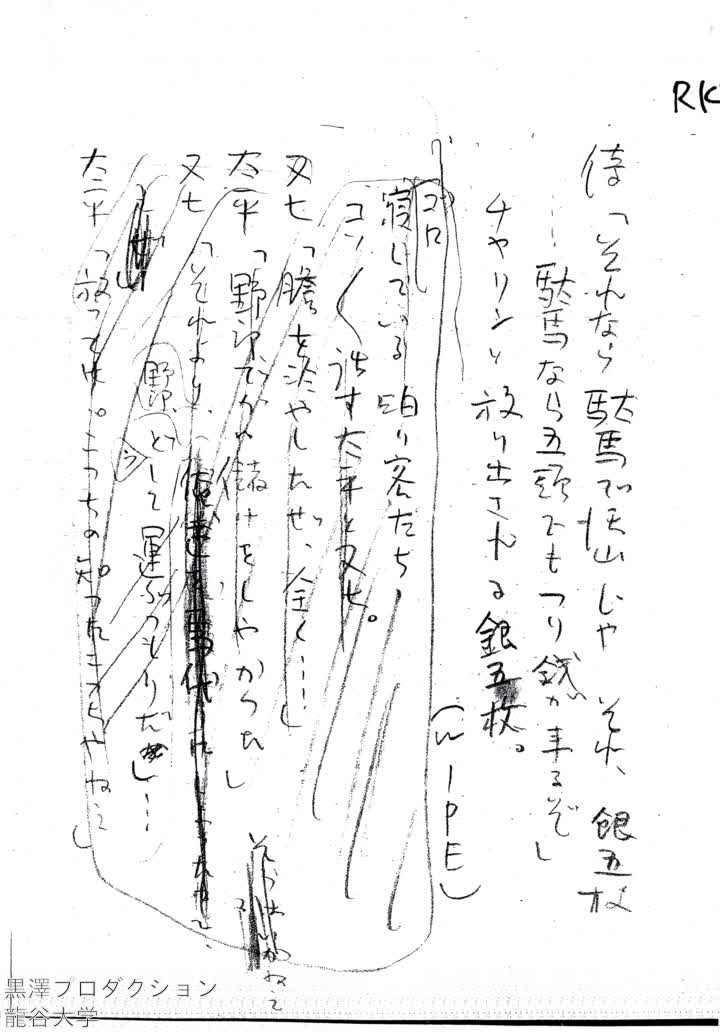 RK
侍「それなら駄馬で沢山じゃ それ、銀五枚
…駄馬なら五頭でもつり銭が来るぞ」
チャリンと放り出される銀五枚。
(WIPE)
寝している泊り客たち―
コソ〱話す太平と又七。
又七「膽を冷やしたぜ、全く……」
太平「野郎でかい儲けをしやがった」
又七「それより、
野郎、どうして運ぶつもりだ…
太平「放っとけ。こっちの知ったこっちゃねえ」
黒澤プロダクション
龍谷大学